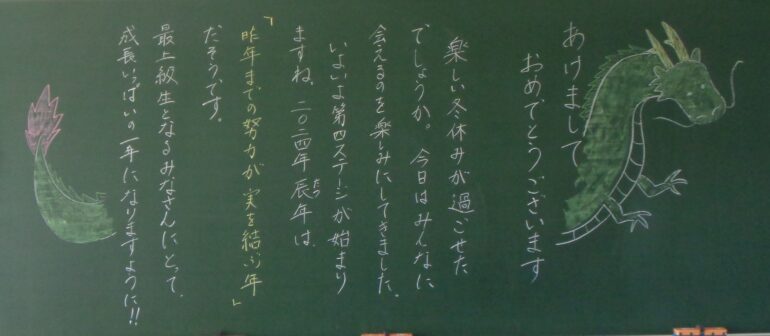 あけまして
おめでとうございます
楽しい冬休みが過ごせた
でしょうか。今日はみんなに
会えるのを楽しみにしてきました。
いよいよ第四ステージが始まり
ますね。二〇二四年辰年は、
たつ
「昨年までの努力が実を結ぶ年」
だそうです。
最上級生となるみなさんにとって、
成長いっぱいの一年になりますように!!